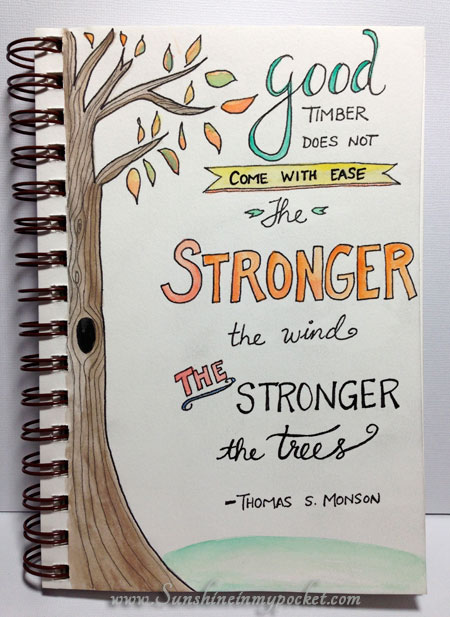 Good
TIMBER
DOES NOT
COME WITH EASE
The
STRONGER
the wind
THE STRONGER
the trees
-THOMAS S. MONSON
www.Sunshineinmypocket.com